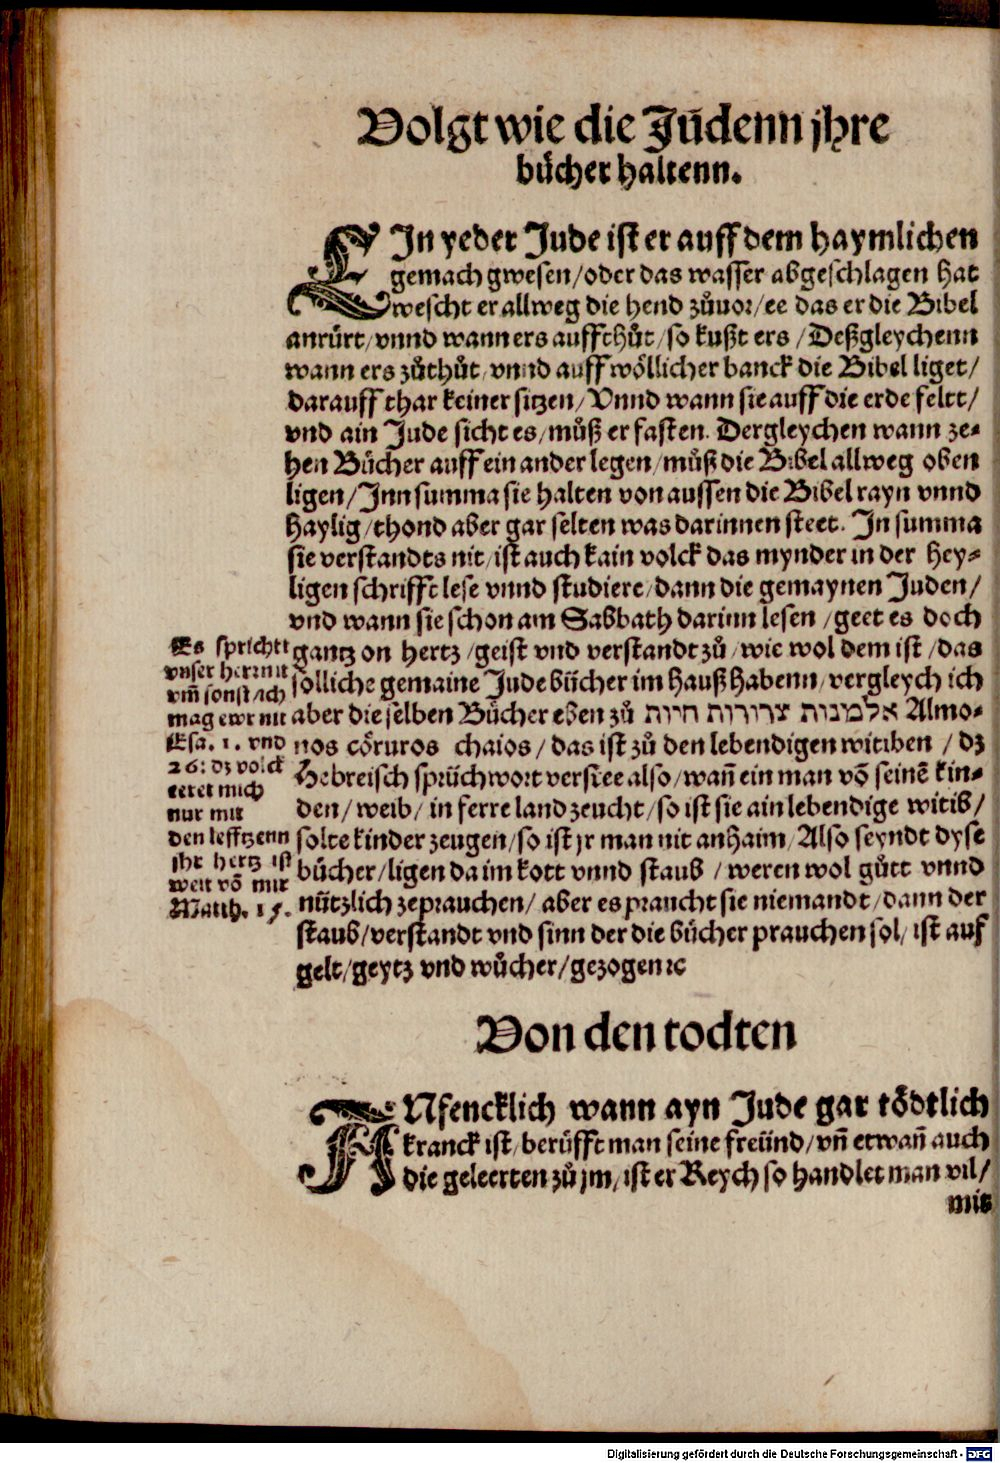 Volgt wie die Jüdenn jhre
bücher haltenn.
EIn yeder Jude ist er auff dem haymlichen
gemach gwesen/oder das wasser abgeschlagen hat
wescht er allweg die hend zůuor/ee das er die Bibel
anrürt/vnnd wann ers auffthůt/so kußt ers/Deßgleychenn
wann ers zůthůt/vnnd auff wöllicher banck die Bibel liget/
darauff thar keiner sitzen/Vnnd wann sie auff die erde feltt/
vnd ain Jude sicht es/můß er fasten. Dergleychen wann ze-
hen Bücher auff ein ander legen/můß die Bibel allweg oben
ligen/Jnn summa sie halten von aussen die Bibel rayn vnnd
haylig/thond aber gar selten was darinnen steet. Jn summa
sie verstandts nit/ist auch kain volck das mynder in der hey-
ligen schrifft lese vnnd studiere/dann die gemaynen Juden/
vnd wann sie schon am Sabbath darinn lesen/geet es doch
gantz on hertz/geist vnd verstandt zů/wie wol dem ist/das
sölliche gemaine Jude bücher im hauß habenn/vergleych ich
aber die selben Bücher eben zů אלמנות צרורות חיות Almo-
nos cöruros chaios/das ist zů den lebendigen witiben/dz
Hebreisch sprüchwort verstee also/wañ ein man võ seinẽ kin-
den/weib/in ferre land zeucht/so ist sie ain lebendige witib/
solte kinder zeugen/so ist jr man nit anhaim/Also seyndt dyse
bücher/ligen da im kott vnnd staub/weren wol gůtt vnnd
nützlich zeprauchen/aber es praucht sie niemandt/dann der
staub/verstandt vnd sinn der die bücher prauchen sol/ist auf
gelt/geytz vnd wůcher/gezogen ꝛc
Es spricht
vnser herr nit
vm̃ sonst/ich
mag ewr nit
Esa. 1. vnd
26: dz volck
eeret mich
nur mit
den lefftzenn
jhr hertz ist
weit võ mir
Matth. 15.
Von den todten
ANfencklich wann ayn Jude gar tödtlich
kranck ist/berüfft man seine freünd/vñ etwañ auch
die geleerten zů jm/ist er Reych so handlet man vil/
mit
Digitalisierung gefördert durch die Deutsche Forschungsgemeinschaft - DFG